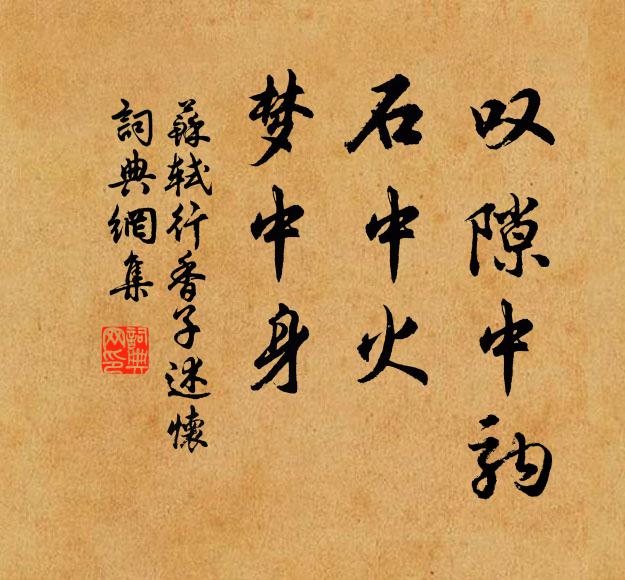 叹隙中驹
石中火
梦中身
蘇轼行香子述懷
詞典網集
詞典网印